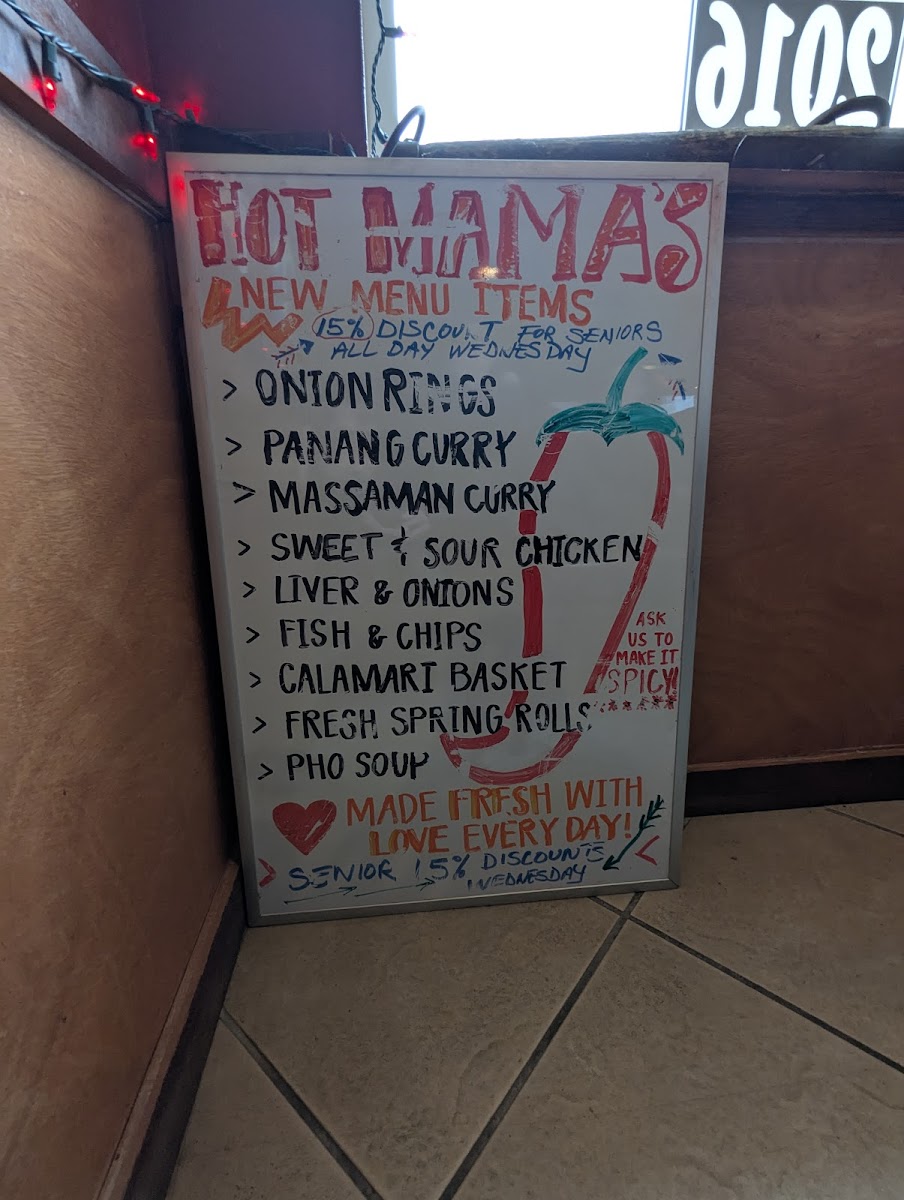 2016
HOT MAMA'S
NEW MENU ITEMS
15% DISCOUNT FOR SENIORS
ALL DAY WEDNESDAY
> ONION RINGS
> PANANG CURRY
> MASSAMAN CURRY
> SWEET & SOUR CHICKEN
> LIVER & ONIONS
> FISH & CHIPS
> CALAMARI BASKET
> FRESH SPRING ROLLS
> PHO SOUP
ASK
US TO
MAKE IT
SPICY!
MADE FRESH WITH
LOVE EVERY DAY!
SENIOR 15% DISCOUNTS
WEDNESDAY